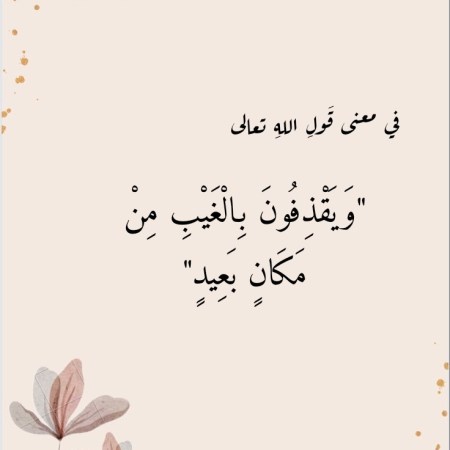 في معنى قَولِ اللهِ تعالى
"وَيَقْذِفُونَ بِالْغَيْبِ مِنْ
مَكَانٍ بَعِيدٍ"